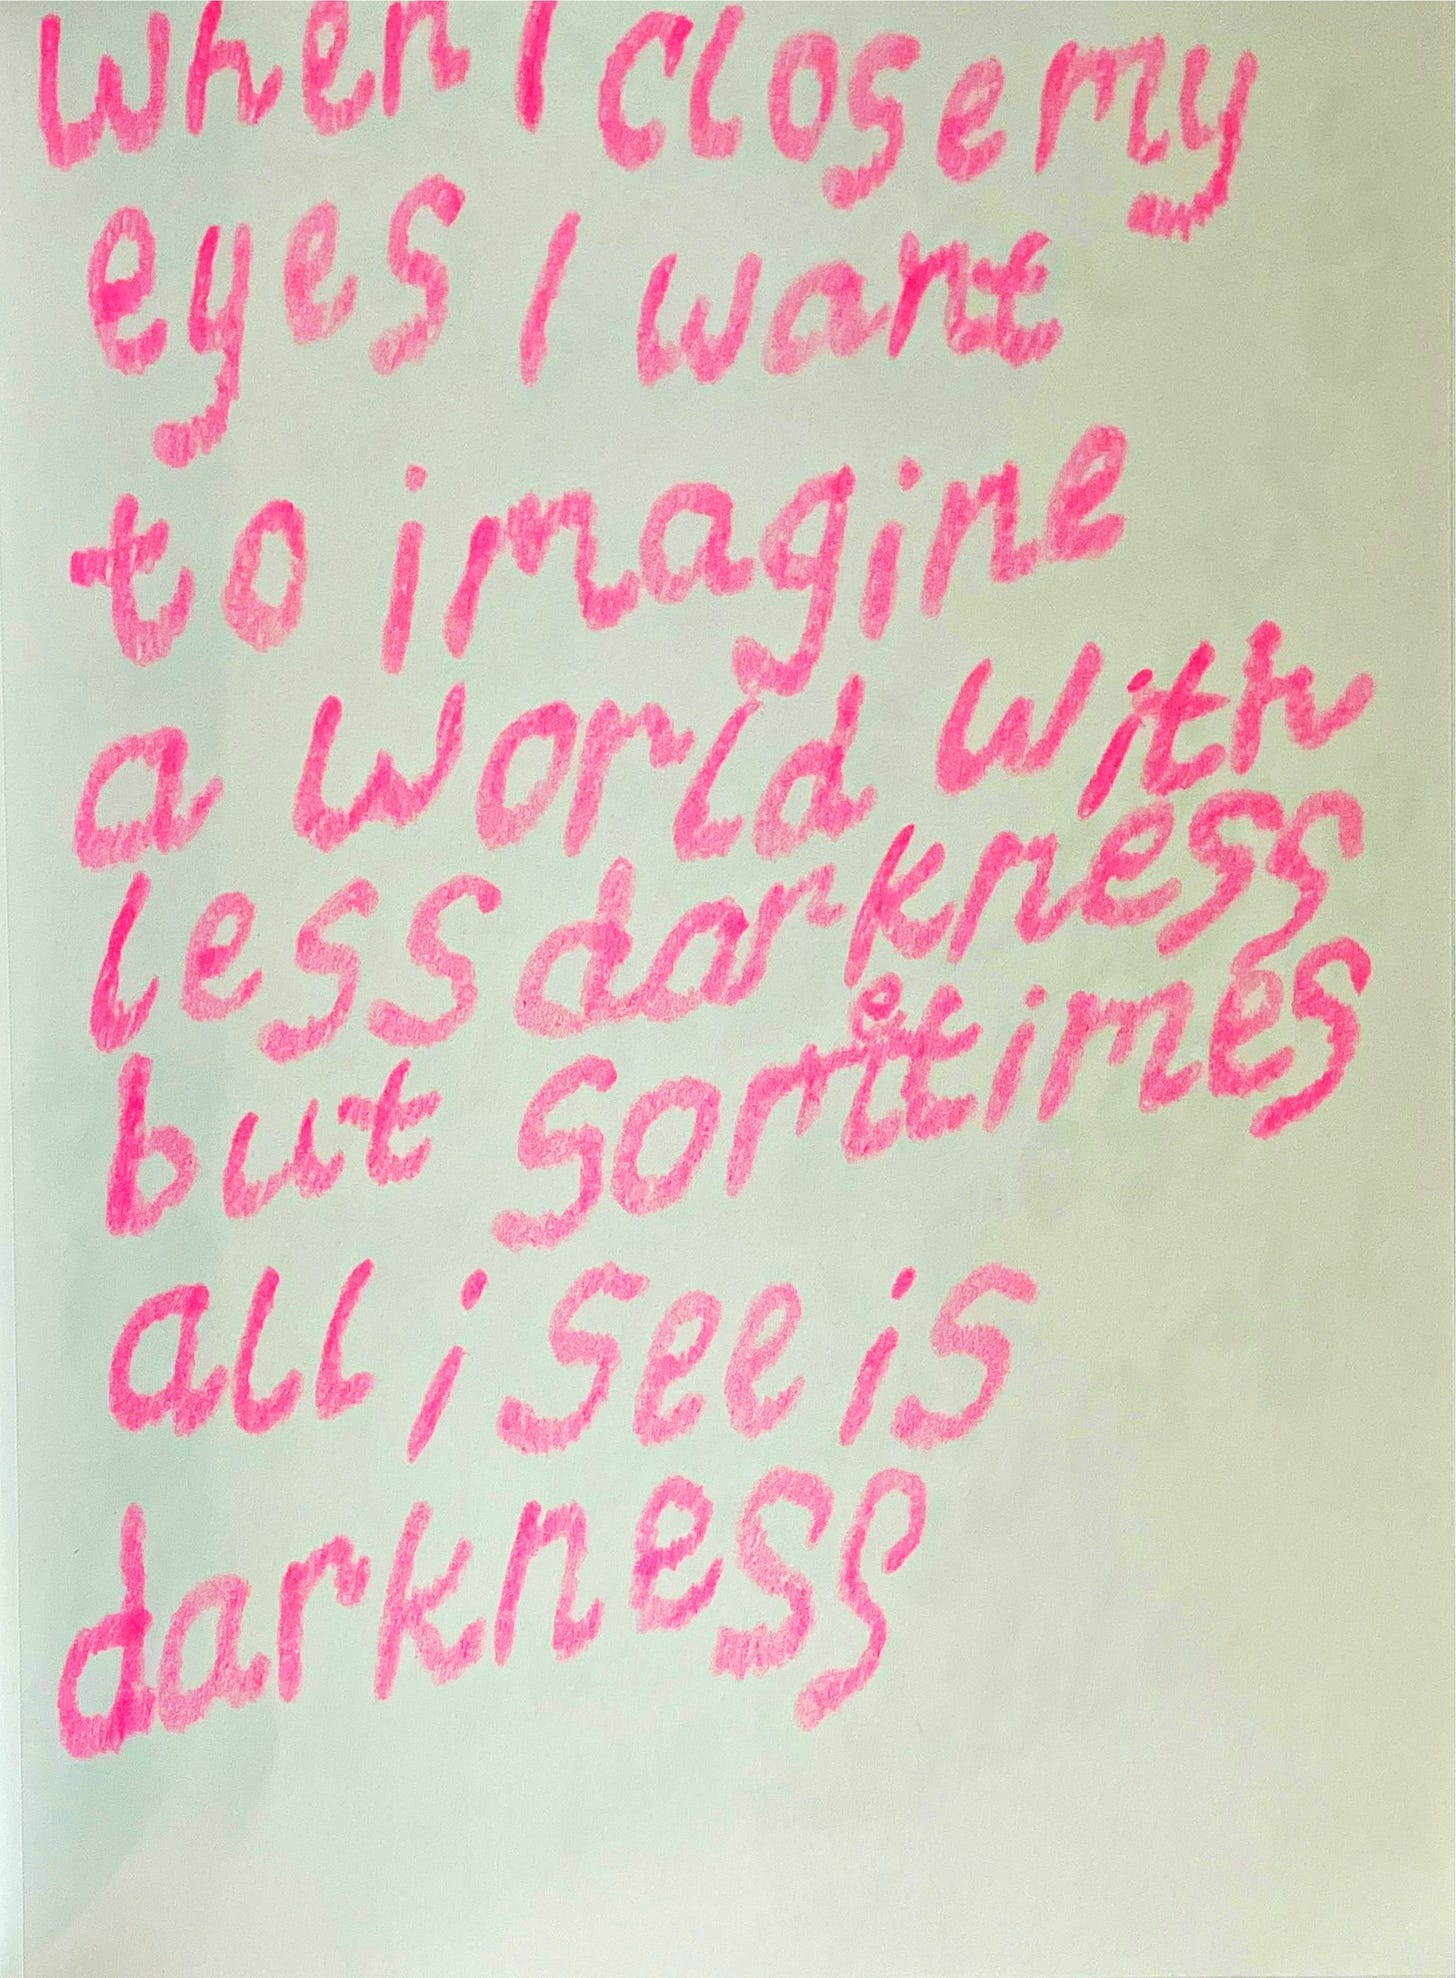 When I close my
eyes I want
to imagine
a world with
less darkness
but sometimes
all i see is
darkness